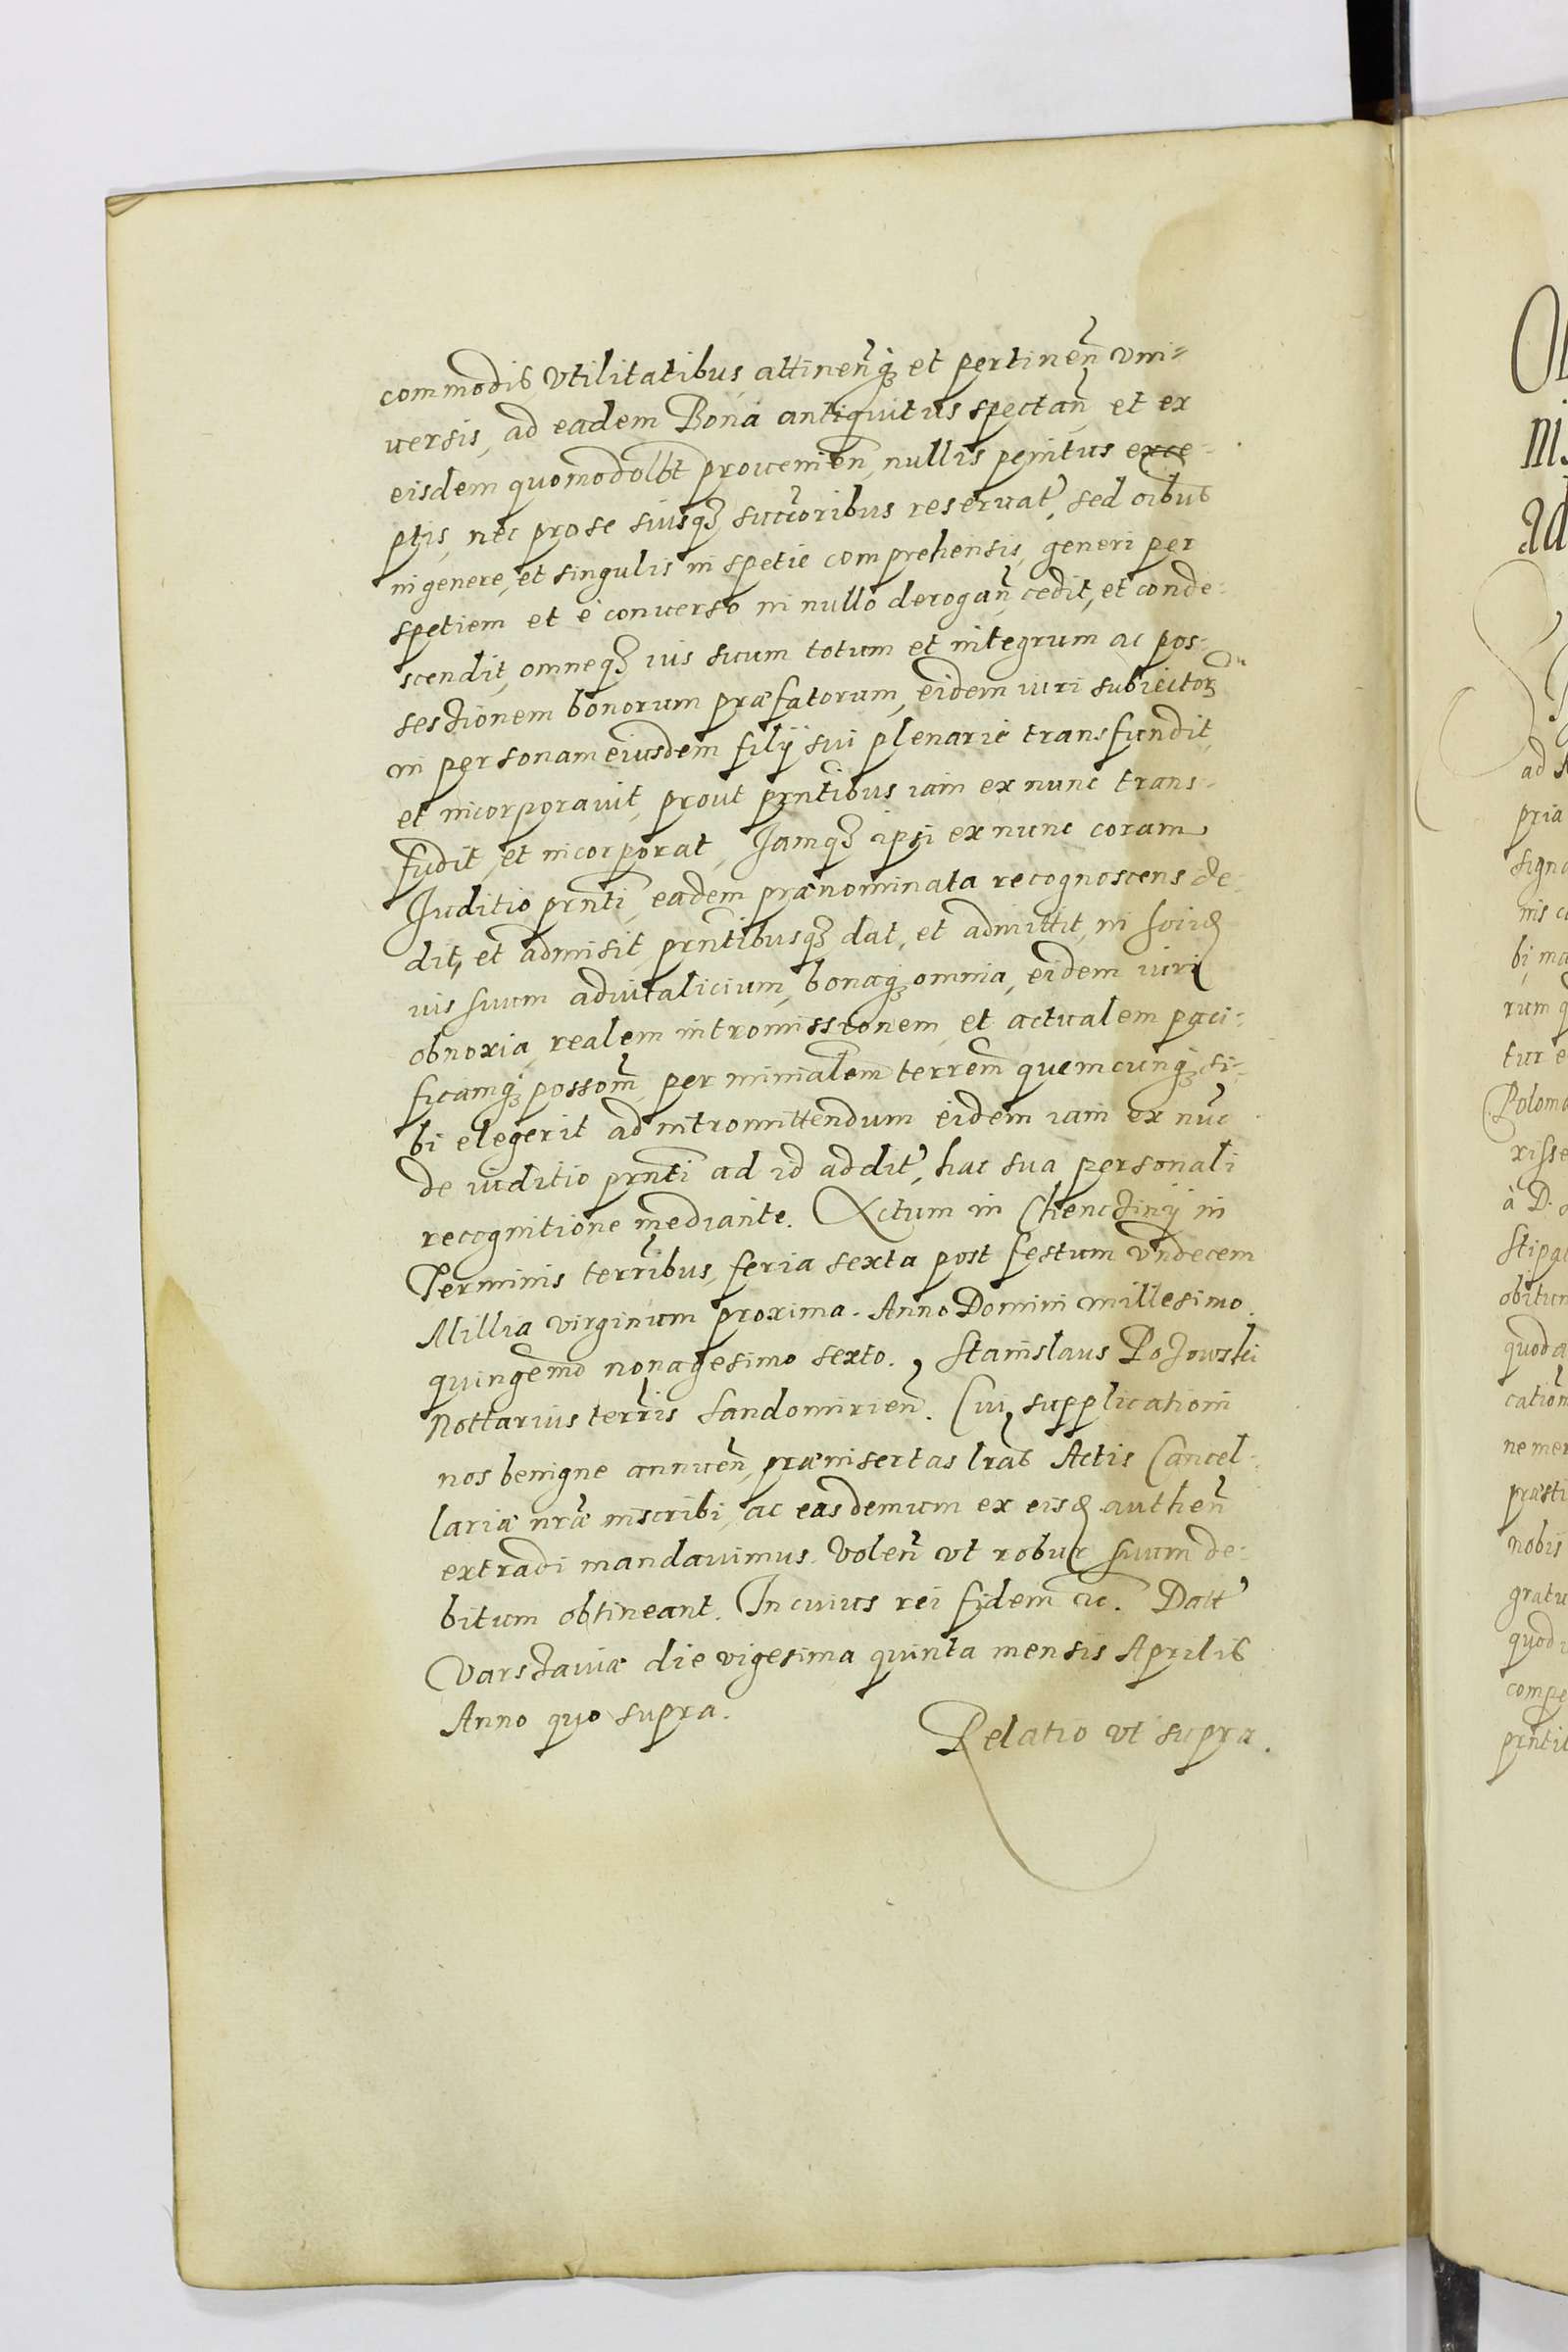 commodis, vtilitatibus, attineñq₃ et pertineñ vni=
uersis, ad eadem Bona antiquitus spectañ et ex
eisdem quomodolbt prouenien̄, nullis penitus exce-
ptis, nec pro se suisq₃ succ̃oribus reseruat', sed oibus
in genere, et singulis in spetie comprehensis, generi per
spetiem et è conuerso in nullo derogañ cedit, et conde-
scendit, omneq₃ ius suum totum et integrum ac pos-
sessionem bonorum præfatorum, eidem iuri subiector̃
in personam eiusdem filij sui plenarie transfundit,
et incorporauit, prout prñtibus iam ex nunc trans-
fudit, et incorporat, Jamq₃ ipsi ex nunc coram
Juditio prñti, eadem prænominata recognoscens de-
dit, et admisit, prñtibusq₃ dat, et admittit, in
ius suum aduitalicium, bonaq₃ omnia, eidem iuri
obnoxia, realem intromissionem, et actualem paci-
ficamq₃ possom̃, per minialem terrem̃ quemcunq₃ si-
bi elegerit ad intromittendum eidem iam ex nũc
de iuditio prñti ad id addit', hac sua personali
recognitione mediante. Actum in Chencziny in
Terminis terr̃ibus, feria sexta post festum vndecem
Millia virginum proxima. Anno Domini millesimo
quingem̃o nonagesimo sexto. Stanislaus
Nottarius terr̃is Sandomirieñ. Cui, supplicationi
nos benigne annueñ, præinsertas lr̃as Actis Cancel-
lariæ nr̃æ inscribi, ac easdemum ex eisd. autheñ
extradi mandauimus. Voleñ vt robur suum de-
bitum obtineant. In cuius rei fidem etc. Datt'
Varszauiæ die vigesima quinta mensis Aprilis
Anno quo supra.
Relatio vt supra.
ni
ad
ad
pria
signo
nis c
bi ma
rum q
tur e
Polom
xisse
à D.
stipa
obitum
quod a
cation
ne me
præsti
nobis
gratu
quod
compe
prñti